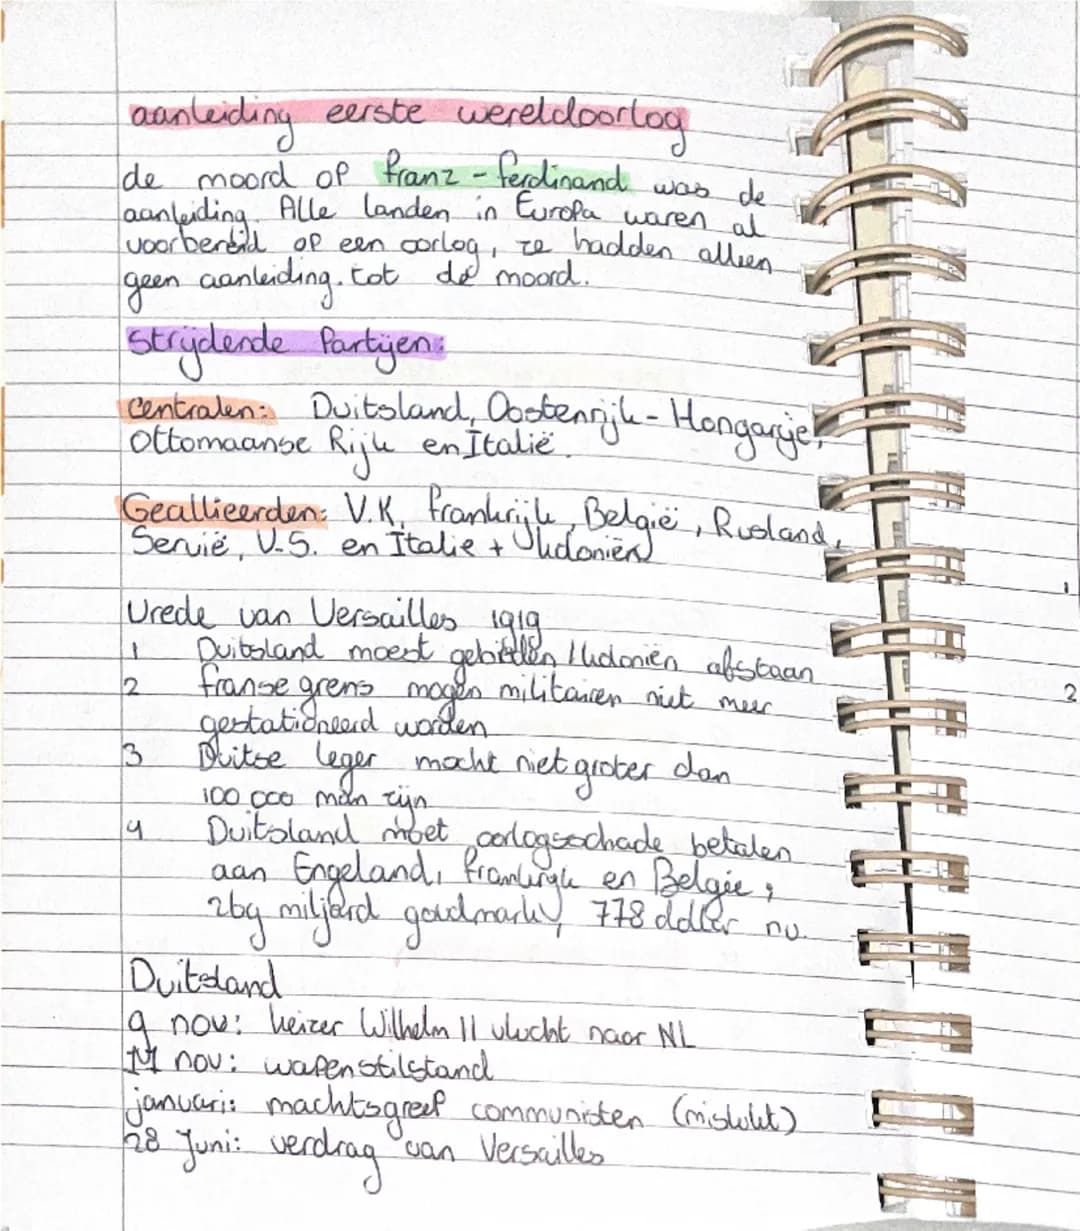 aanleiding eerste wereldoorlog
de moord op franz-ferdinand was de
aanleiding. Alle landen in Europa waren al
voorbereid op een oorlog, ze hadden alleen
geen aanleiding. tot de moord.
Strijdende Partijen:
Centralen: Duitsland, Oostenrijk-Hongarije,
Ottomaanse Rijk en Italië.
Geallieerden: V.K, frankrijk, België, Rusland,
Servië, V.S. en Italie +
Vrede van Versailles 1919
1 Duitsland moest gebieden / afstaan
2 franse grens mogen militairen niet meer
gestationeerd worden
3 Duitse leger mocht niet groter dan
100 000 man zijn
4 Duitsland moet oorlogsschade betalen
aan Engeland, frankrijk en België,
269 miljard goudmark, 778 dollar nu.
Duitsland
9 nov: keizer Wilhelm II vlucht naar NL
11 nov: wapenstilstand
januari: machtsgreep communisten (mislukt)
28 Juni: verdrag van Versailles
1
2